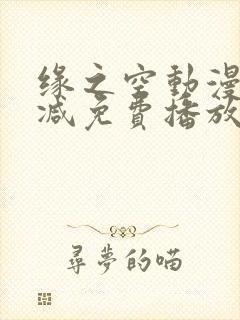 缘之空動漫
减免費播放
尋夢的喵